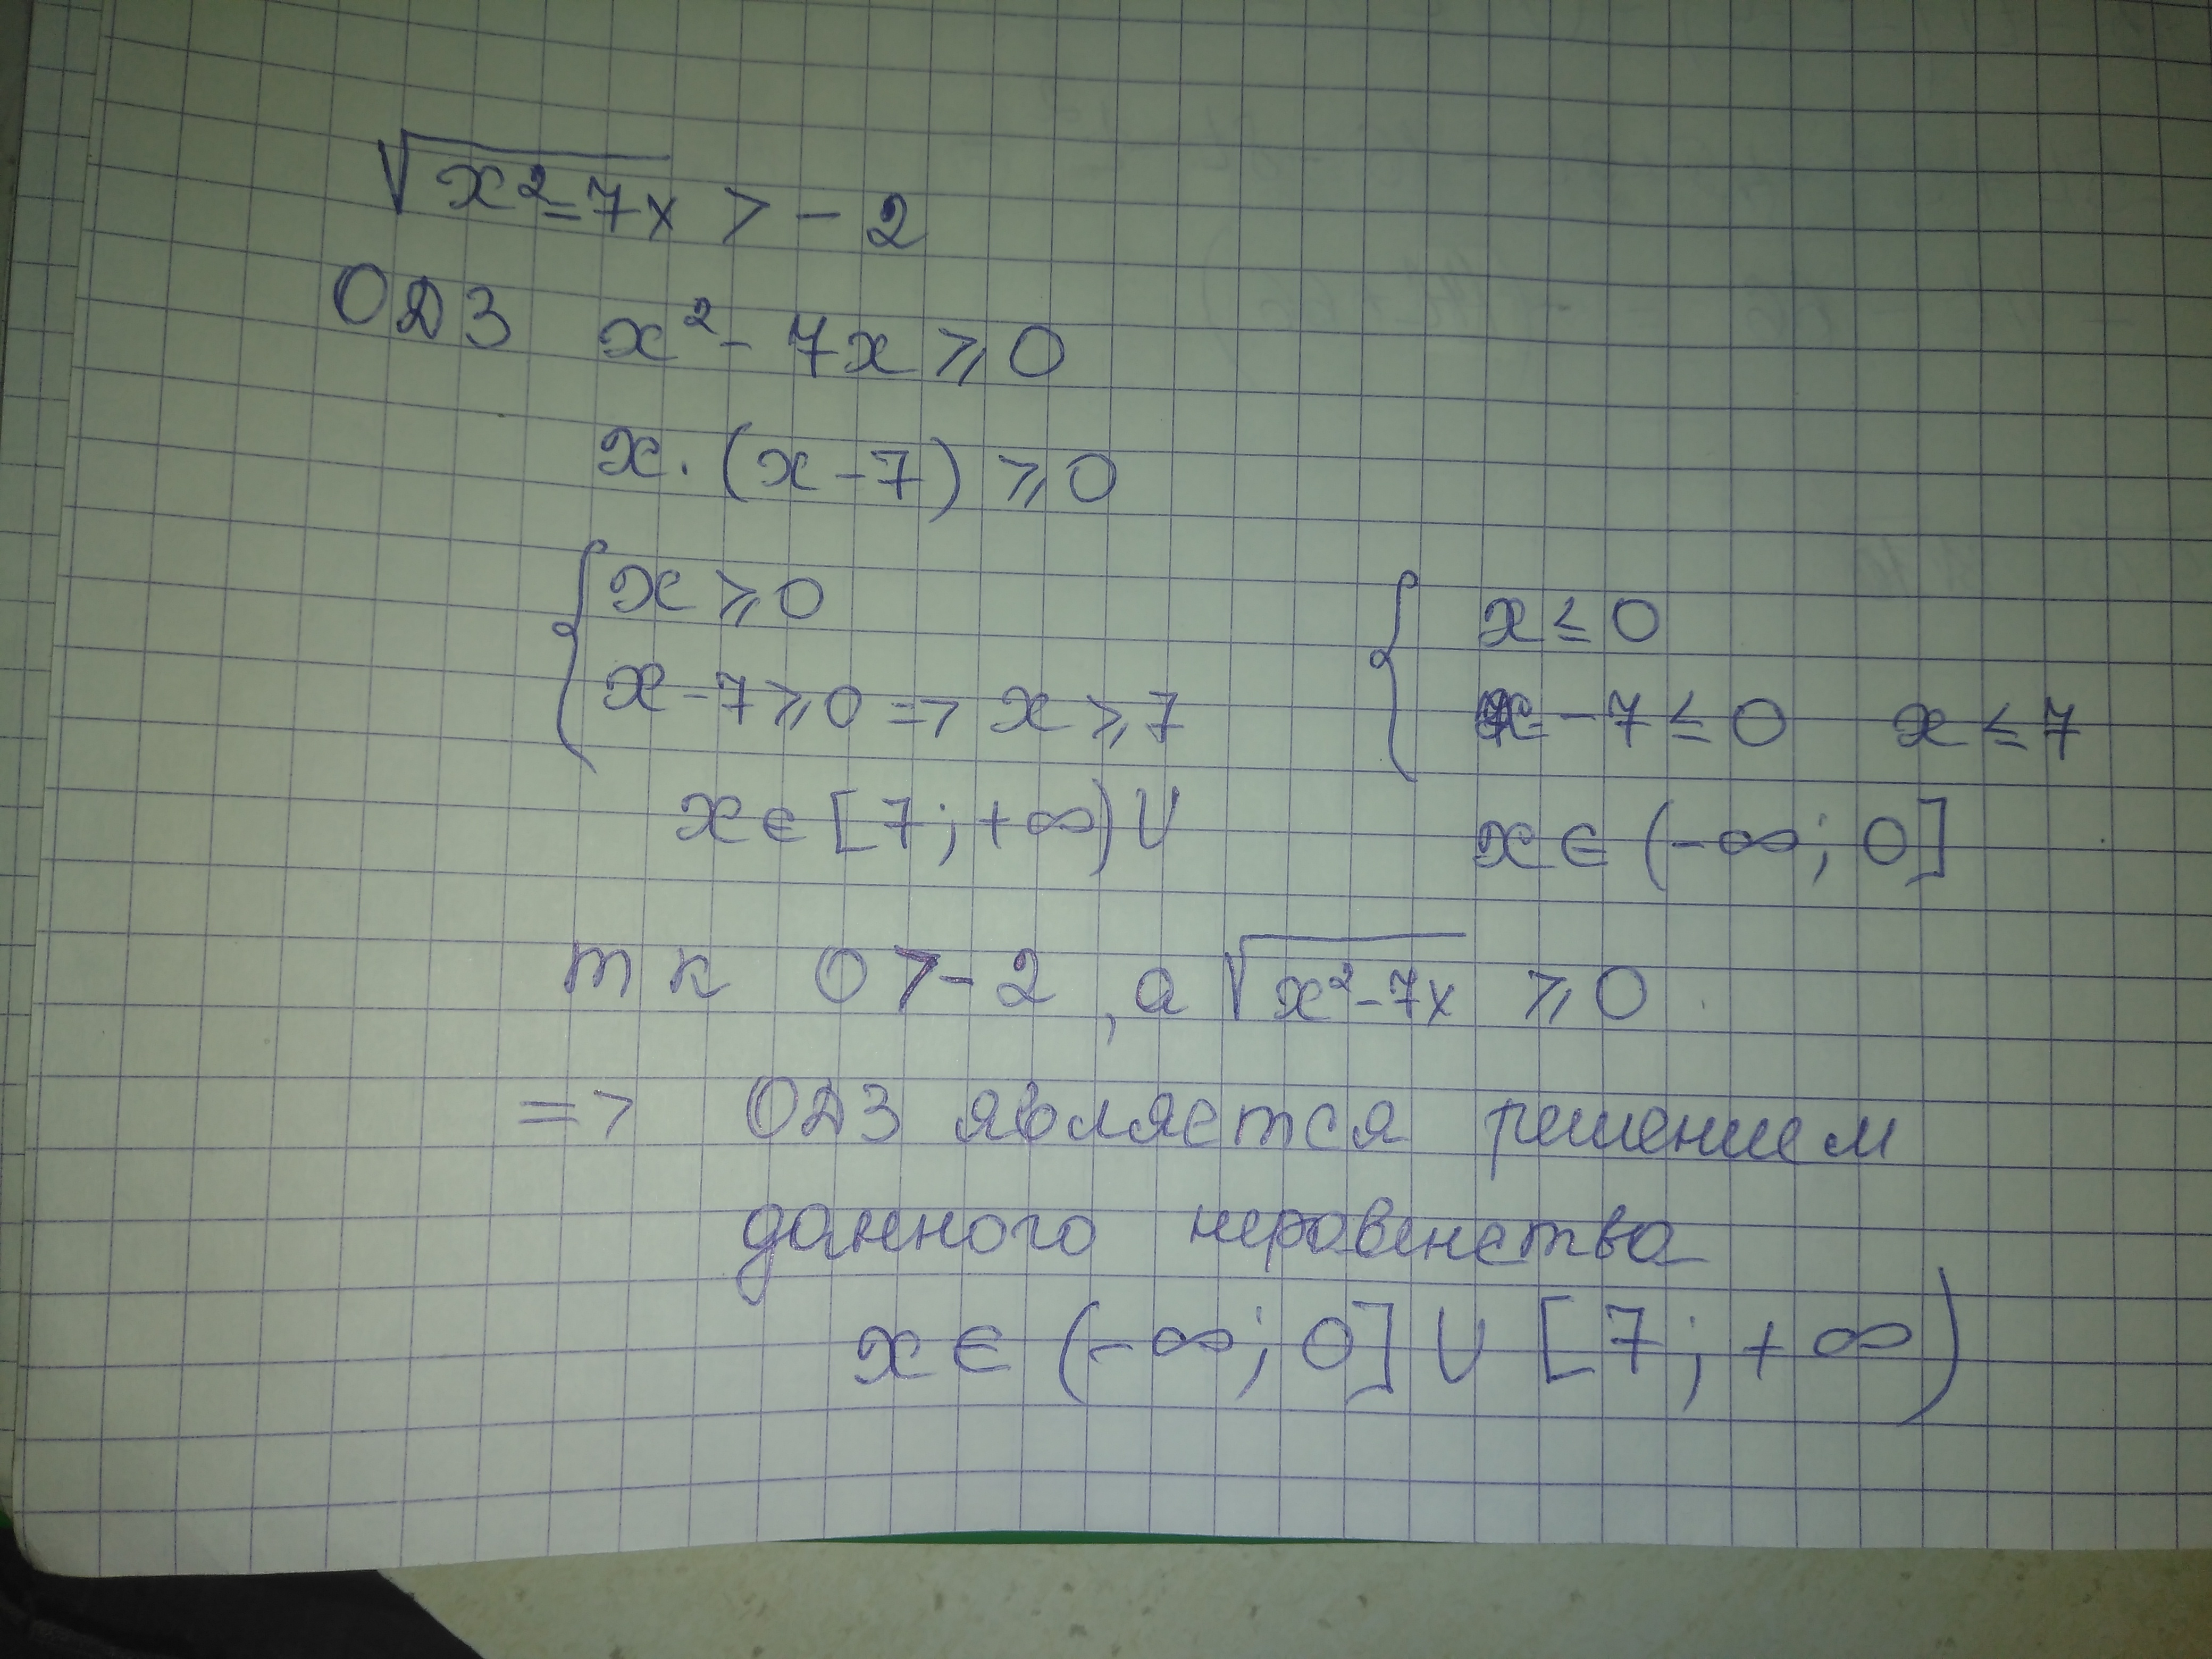 √x²-7x > -2
ОДЗ x² - 7x ⩾ 0
x · (x - 7) ⩾ 0
{ x ⩾ 0 { x ≤ 0
x - 7 ⩾ 0 => x ⩾ 7 x - 7 ≤ 0 x ≤ 7
x ∈ [7; +∞) ∪ x ∈ (-∞; 0]
т к 0 > -2, а √x²-7x ⩾ 0
=> ОДЗ является решением
данного неравенства
x ∈ (-∞; 0] ∪ [7; +∞)